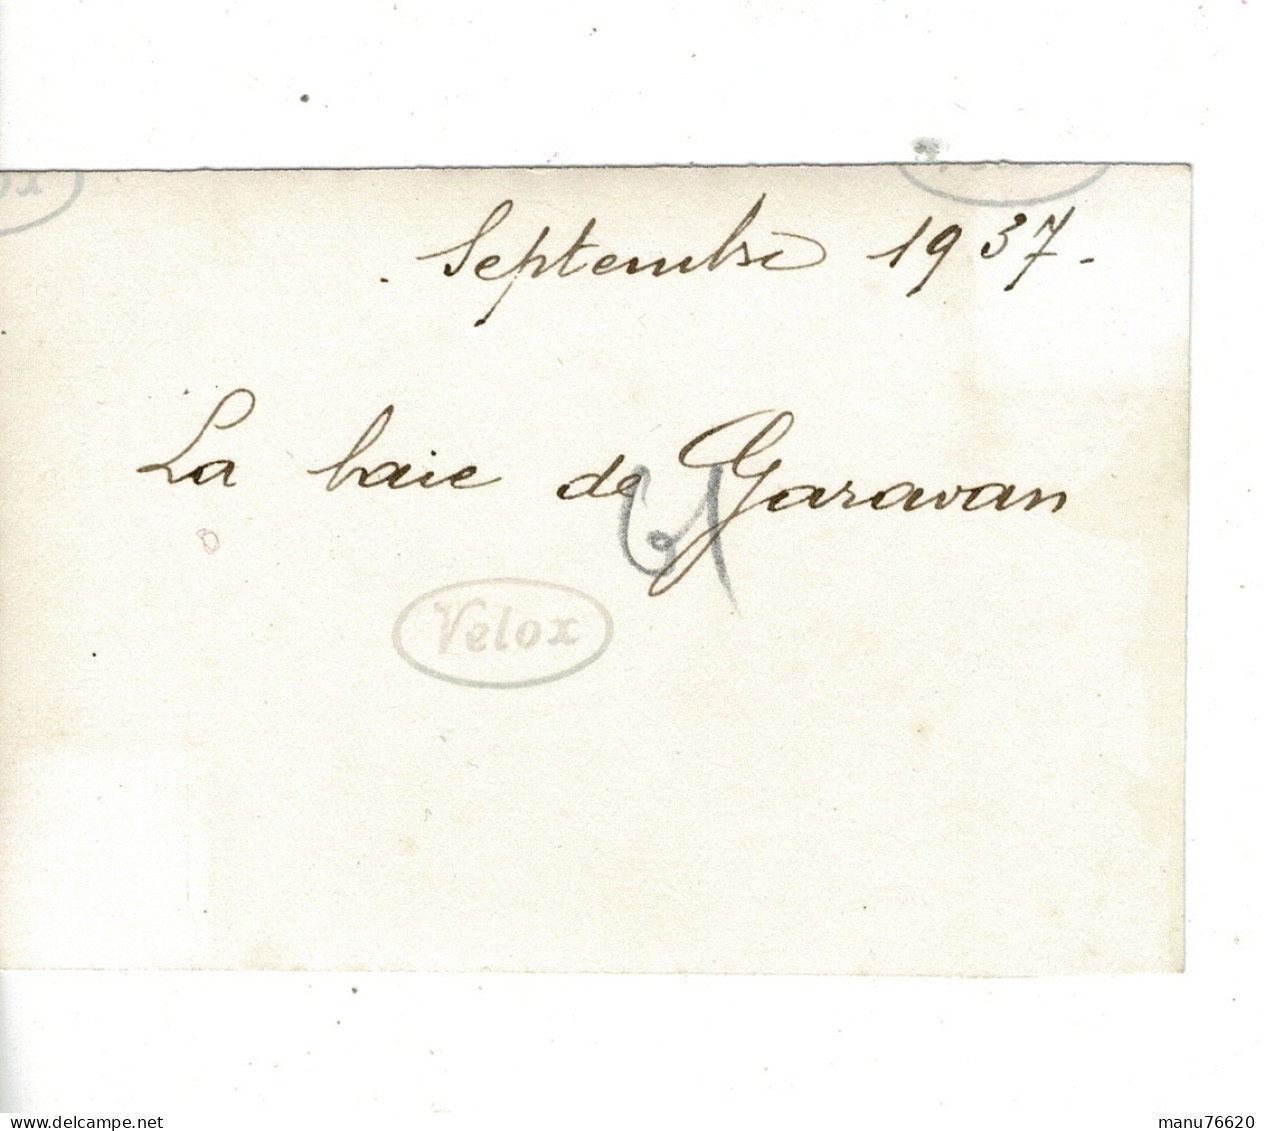 Septembre 1937.
La baie de Garavan
Velox
delcampe.net
manu76620